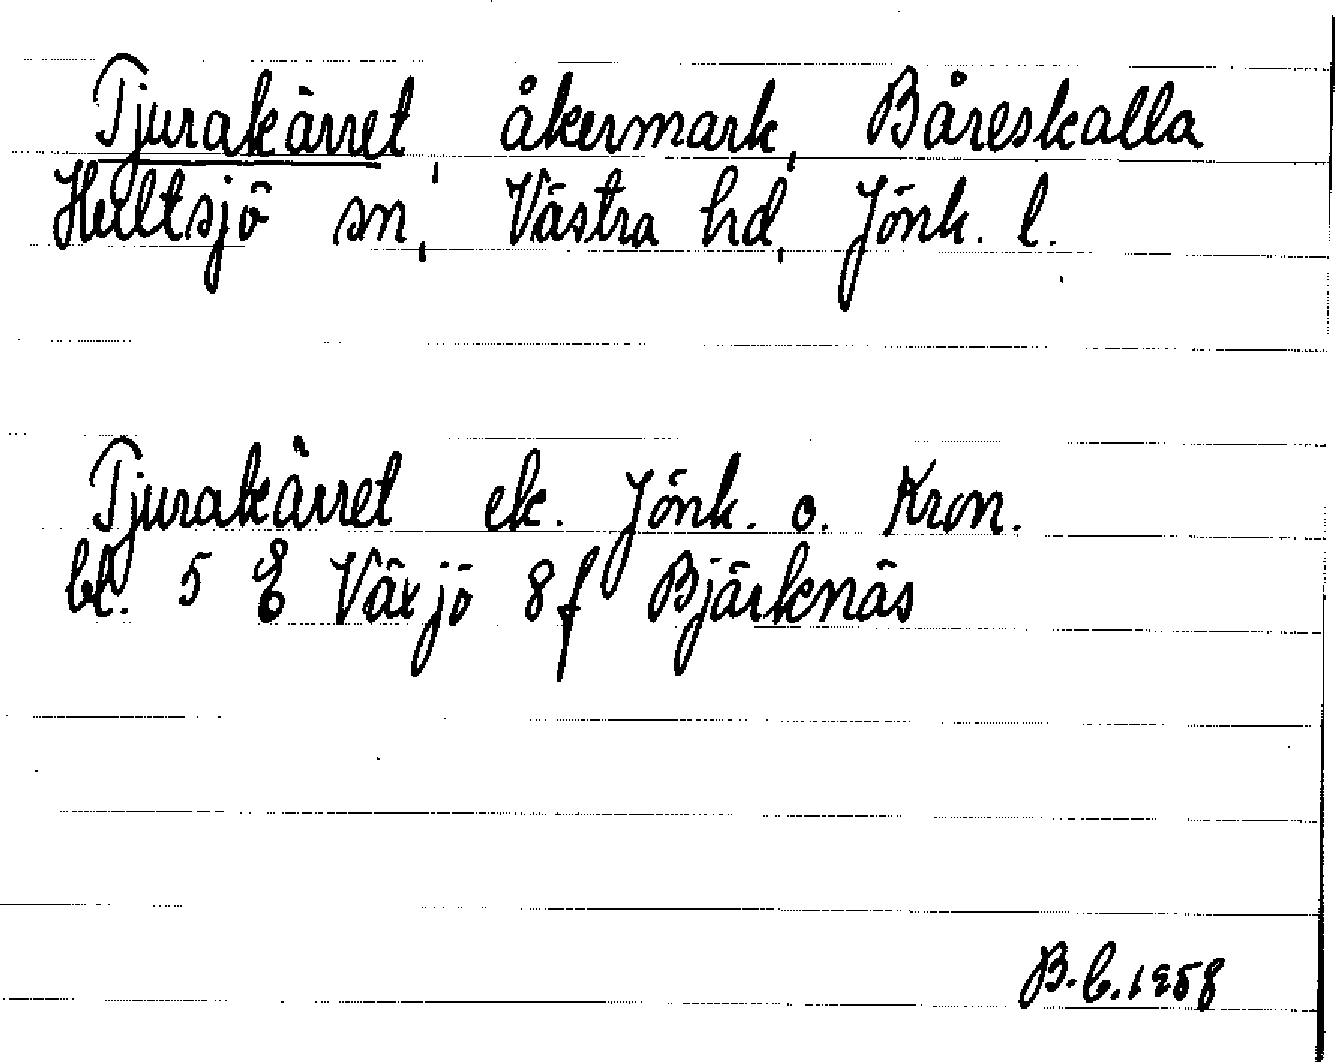 Tjurakärret, åkermark, Båreskalla
Hultsjö sn, Västra hd, Jönk. l.
Tjurakärret ek. Jönk. o. Kron.
bl. 5 E Växjö 8f Bjärknäs
B. C. 1958